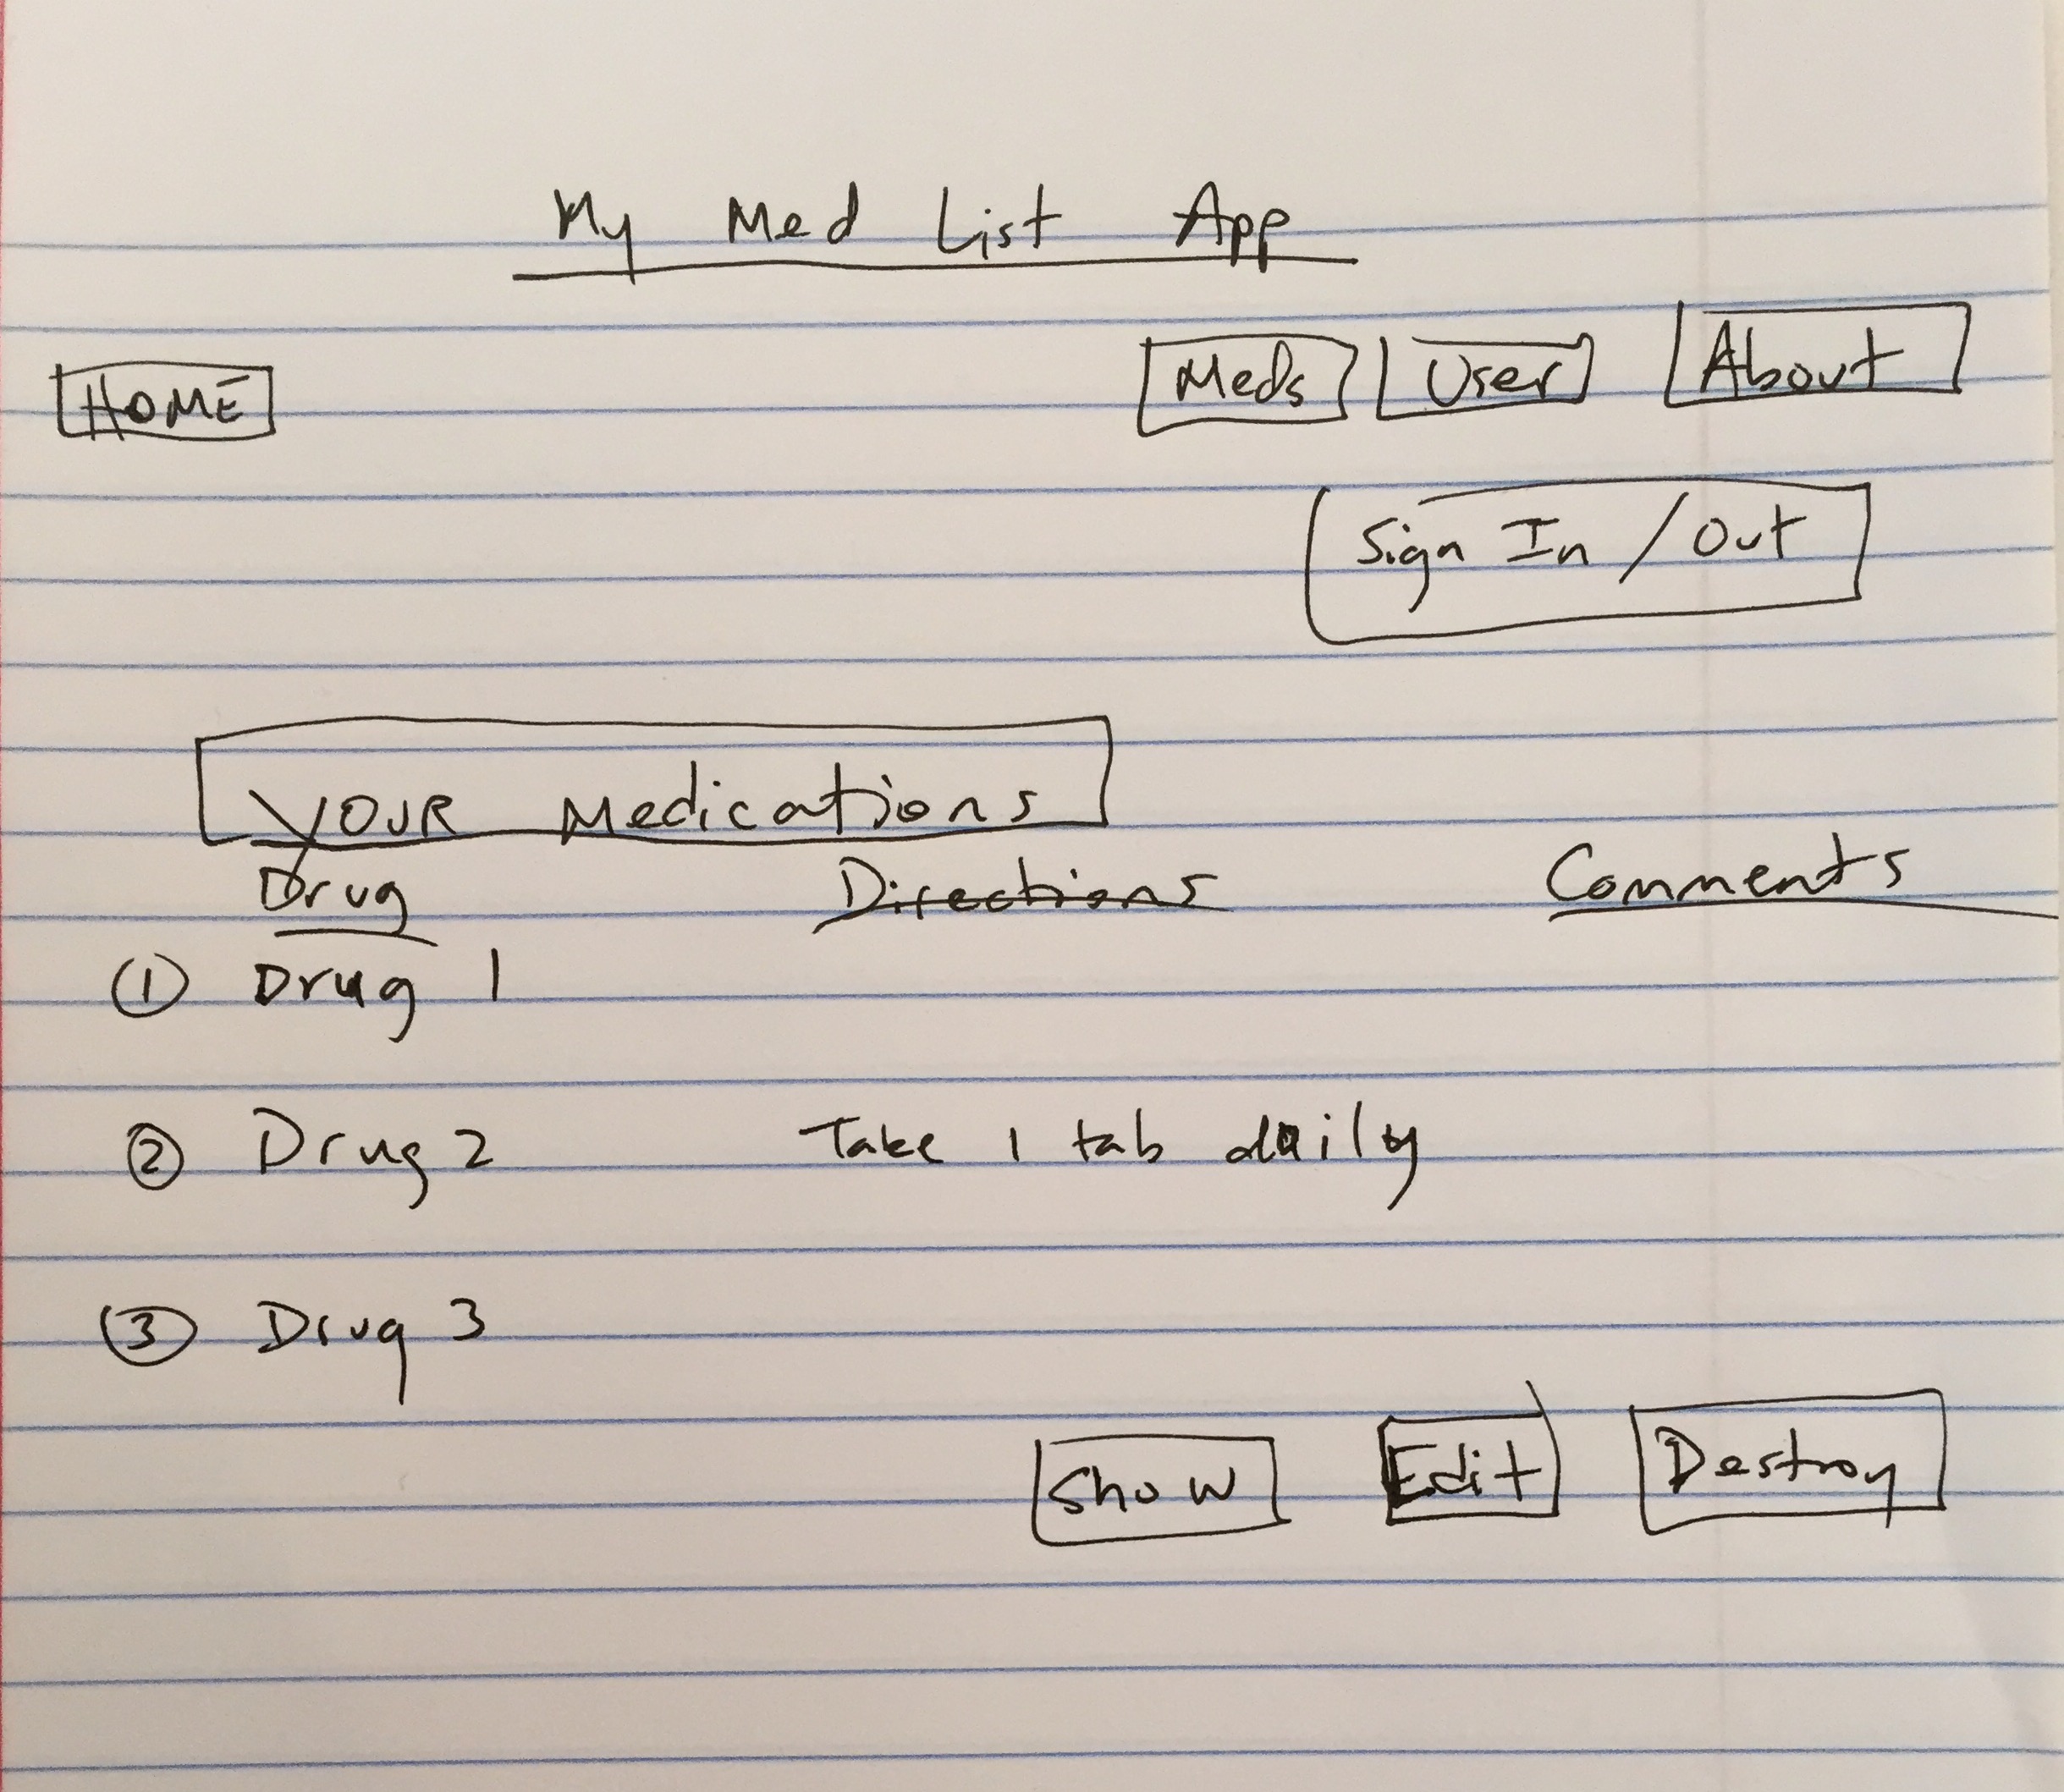 My Med List App
HOME Meds User About
Sign In / Out
YOUR Medications
Drug Directions Comments
① Drug 1
② Drug 2 Take 1 tab daily
③ Drug 3
Show Edit Destroy